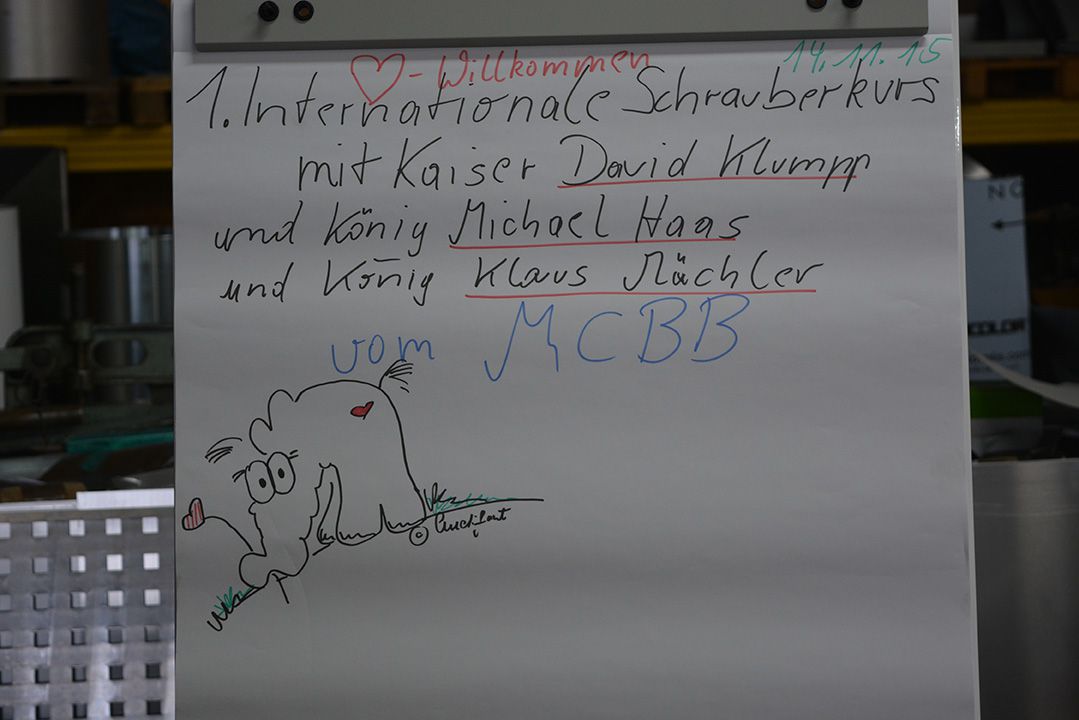 ♡-Willkommen 14.11.15
1. Internationale Schrauberkurs
mit Kaiser David Klumpp
und König Michael Haas
und König Klaus Mächler
vom MCBB
NC
COLOR